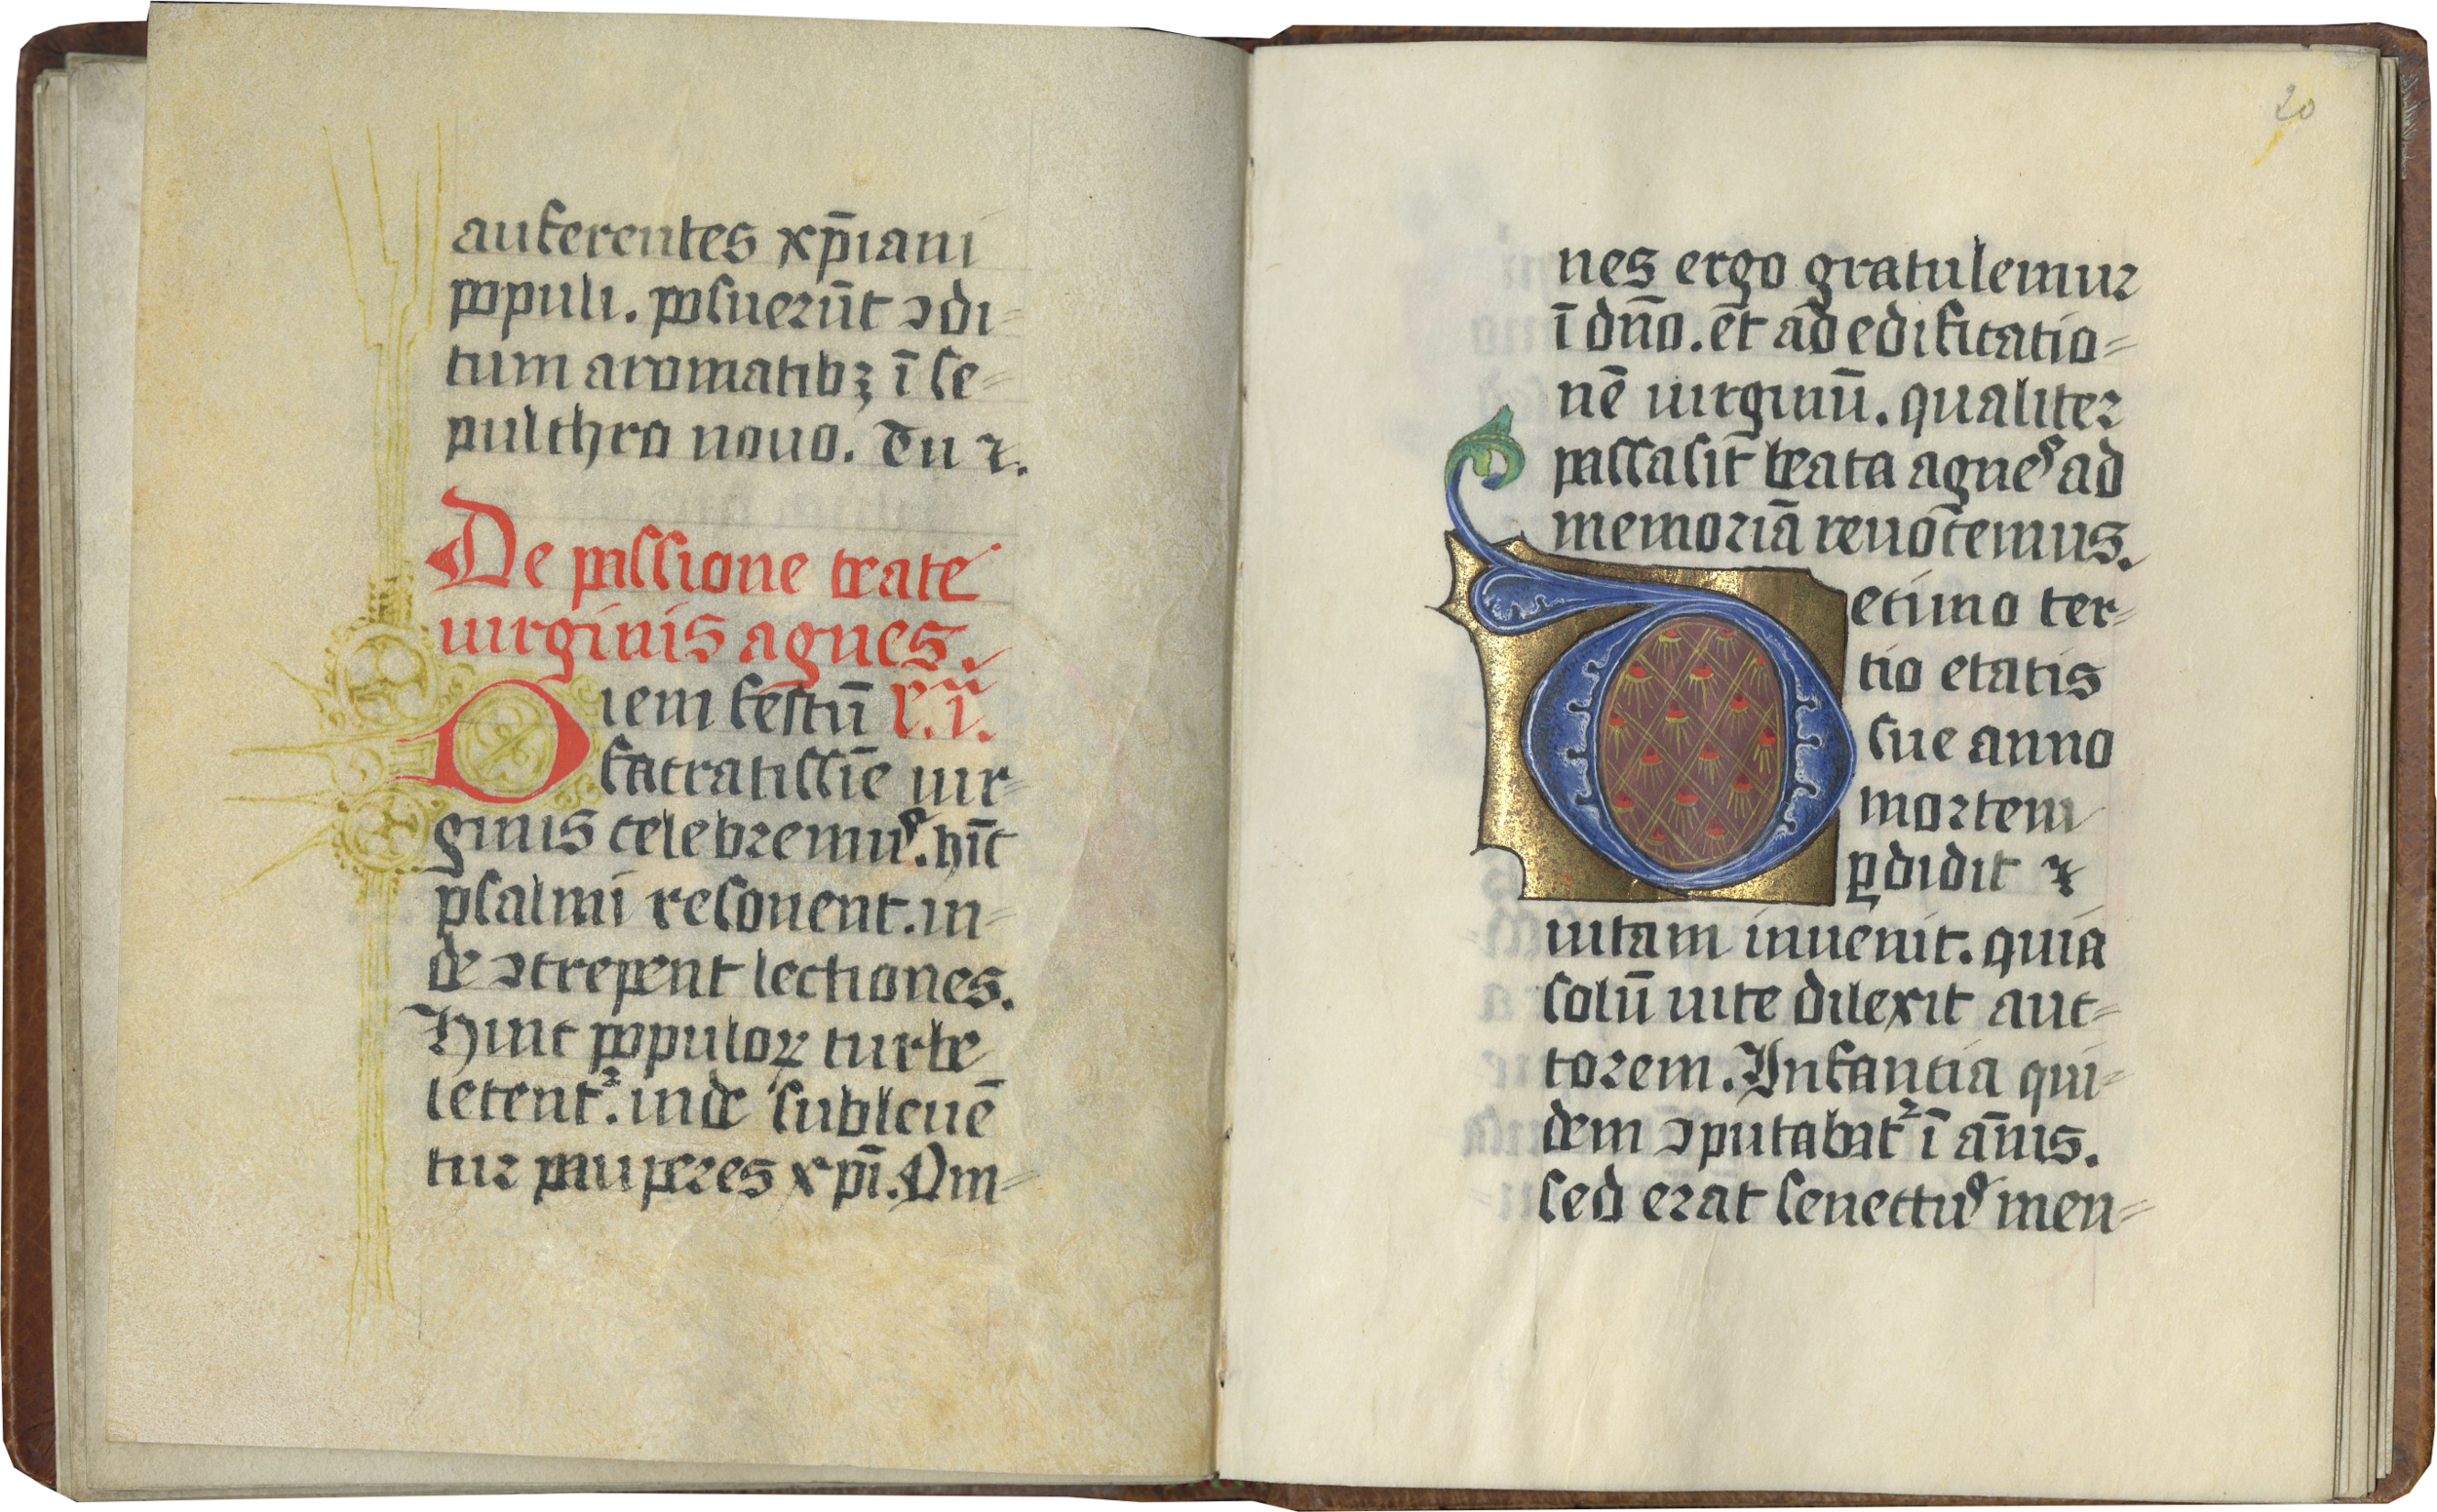 auferentes xp̄iani
populi. posuerūt ꝯdi=
tum aromatibꝫ ī se=
pulchro nouo. Tu ⁊.
De passione beate
uirginis agnes.
Diem festū l'. ī.
sacratissīe uir=
ginis celebremuꝰ. hīc
psalmi resonent. in=
de ꝯcrepent lectiones.
Hinc populoꝝ turbe
letent᷑. inde subleuē
tur pauperes xp̄i. Om=
20
nes ergo gratulemur
ī dn̄o. et̄ ad edificatio=
nē uirginū. qualiter
passa sit̄ beata agneꝰ ad
memoriā reuocemus.
Decimo ter=
tio etatis
sue anno
mortem
ꝑdidit ⁊
uitam inuenit. quia
solū uite dilexit auc=
torem. Infantia qui=
dem ꝯputabat᷑ ī an̄is.
sed erat senectuꝰ men=